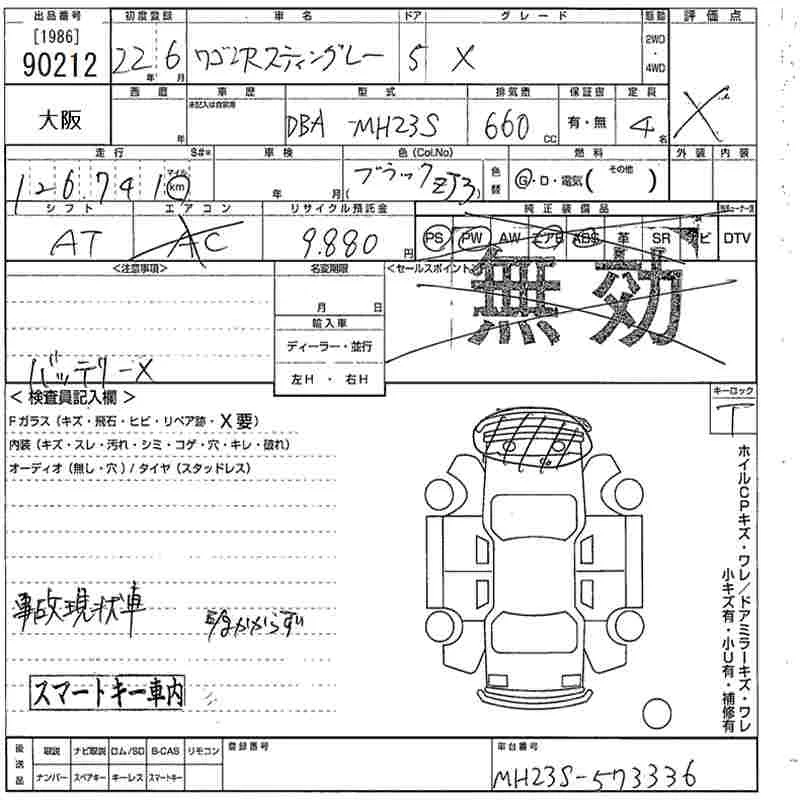 出品番号 初度登録 車名 ドア グレード 駆動 評価点
[1986]
90212 22年 6月 ワゴンRスティングレー 5 X 2WD・4WD X
大阪 西暦 車歴 型式 排気量 保証書 定員
未記入は自家用
年 DBA -MH23S 660cc 有・無 4名
走行 S#* 車検 色(Col.No) 燃料 外装 内装
126741 マイル km 年 月 ブラック(ZJ3) 色替 G・D・電気( その他 )
シフト エアコン リサイクル預託金 純正装備品
AT AC 9.880円 PS PW AW エアB ABS 革 SR ナビ DTV
<注意事項> 名変期限 <セールスポイント>
無効
月 日
輸入車
ディーラー・並行
左H・右H
バッテリーX
<検査員記入欄> キーロック
T
Fガラス(キズ・飛石・ヒビ・リペア跡・X要)
内装(キズ・スレ・汚れ・シミ・コゲ・穴・キレ・破れ)
オーディオ(無し・穴)/タイヤ(スタッドレス)
ホイルCPキズ・ワレ/ドアミラーキズ・ワレ
小キズ有・小U有・補修有
事故現状車
E/gかからず
スマートキー車内
後送品 取説 ナビ取説 ロム/SD B-CAS リモコン 登録番号 車台番号
ナンバー スペアキー キーレス スマートキー MH23S-573336